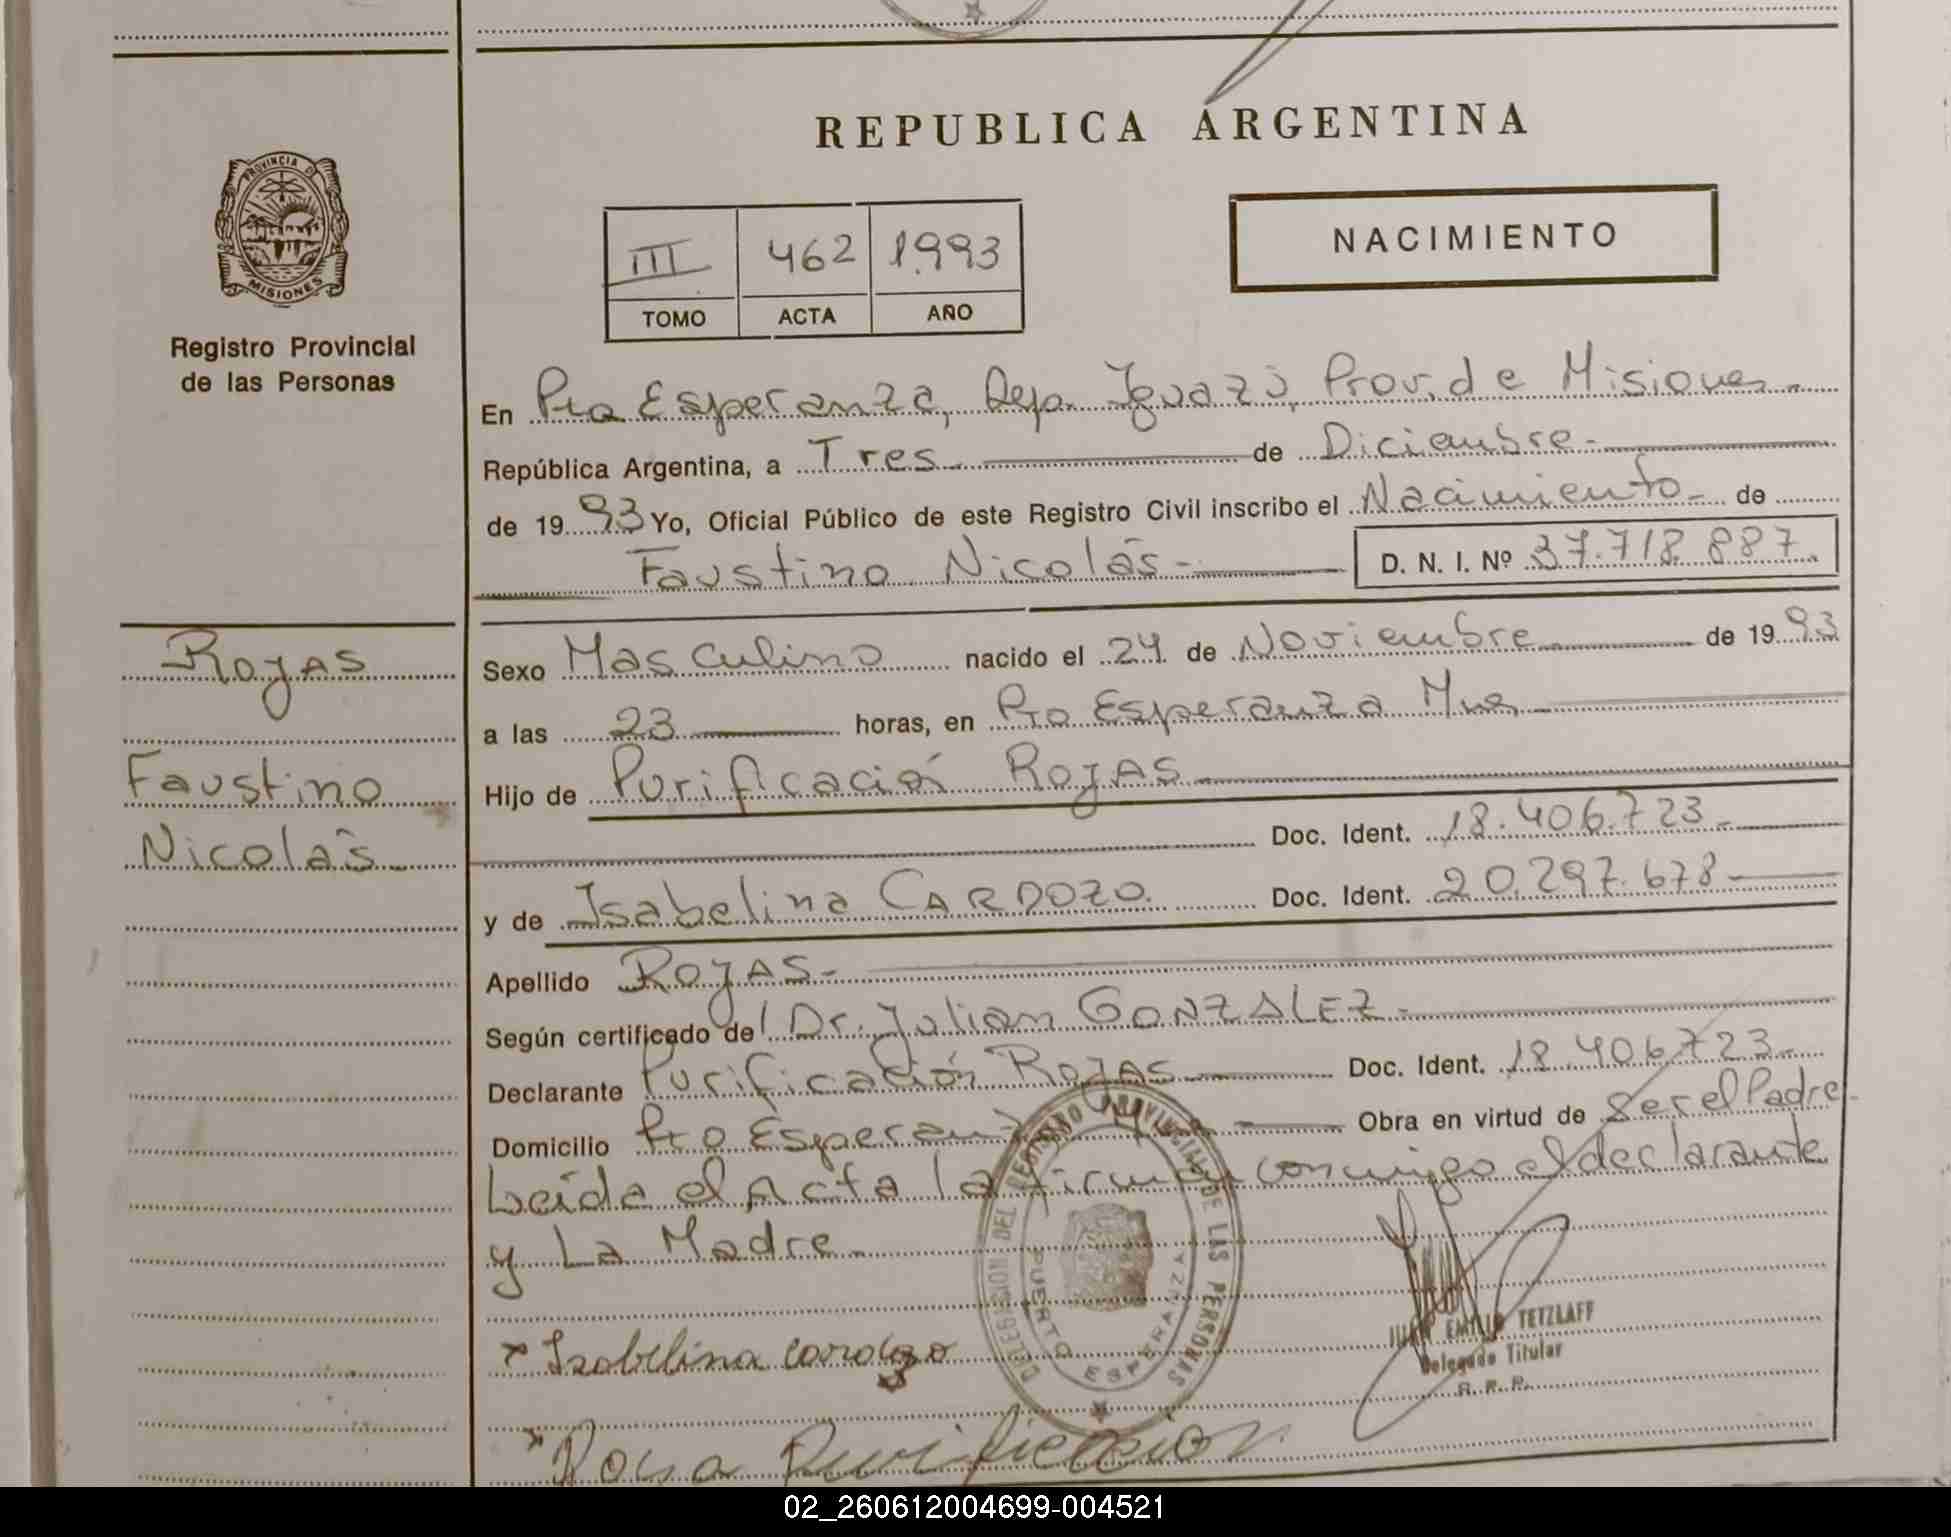 REPUBLICA ARGENTINA
PROVINCIA DE
MISIONES
Registro Provincial
de las Personas
III 462 1993
TOMO ACTA AÑO
NACIMIENTO
En Pto Esperanza, Dep. Iguazú, Prov. de Misiones.-
República Argentina, a Tres de Diciembre.-
de 1993 Yo, Oficial Público de este Registro Civil inscribo el Nacimiento de
Faustino Nicolás.- D. N. I. Nº 37.718.887
Rojas
Faustino
Nicolás
Sexo Masculino nacido el 24 de Noviembre de 1993
a las 23 horas, en Pto Esperanza Mnes
Hijo de Purificación Rojas
Doc. Ident. 18.406.723.-
y de Isabelina CARDOZO. Doc. Ident. 20.297.678-
Apellido Rojas-
Según certificado del Dr. Julian GONZALEZ.-
Declarante Purificación Rojas Doc. Ident. 18.406.723.-
Domicilio Pto Esperanza Obra en virtud de Ser el Padre.-
Leída el Acta la firman conmigo el declarante
y La Madre.
DELEGACION DEL REGISTRO PROVINCIAL DE LAS PERSONAS
PUERTO ESPERANZA
EMILIO TETZLAFF
Delegado Titular
R. P. P.
x Isabelina cardozo
x Rojas Purificacion
02_260612004699-004521